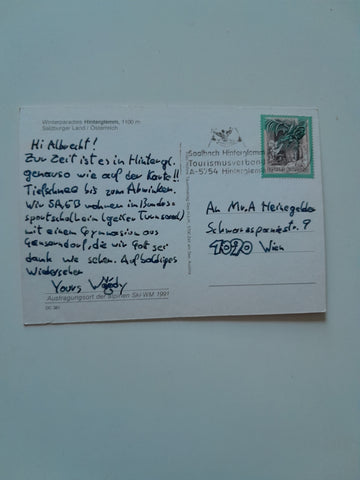 Winterparadies Hinterglemm, 1100 m
Salzburger Land / Österreich
Hi Albrecht!
Zur Zeit ist es in Hintergl.
genauso wie auf der Karte!!
Tiefschnee bis zum Abwinken.
Wir wohnen im Bundes
sportschulheim
mit einem Gymnasium aus
Gänserndorf, die wir Gott sei
dank nie sehen. Auf baldiges
Wiedersehen
Yours
Austragungsort der alpinen Ski-WM 1991
Saalbach Hinterglemm
Tourismusverband
A-5754 Hinterglemm
An Mr. A
Schwarzspanierstr. 9
Wien